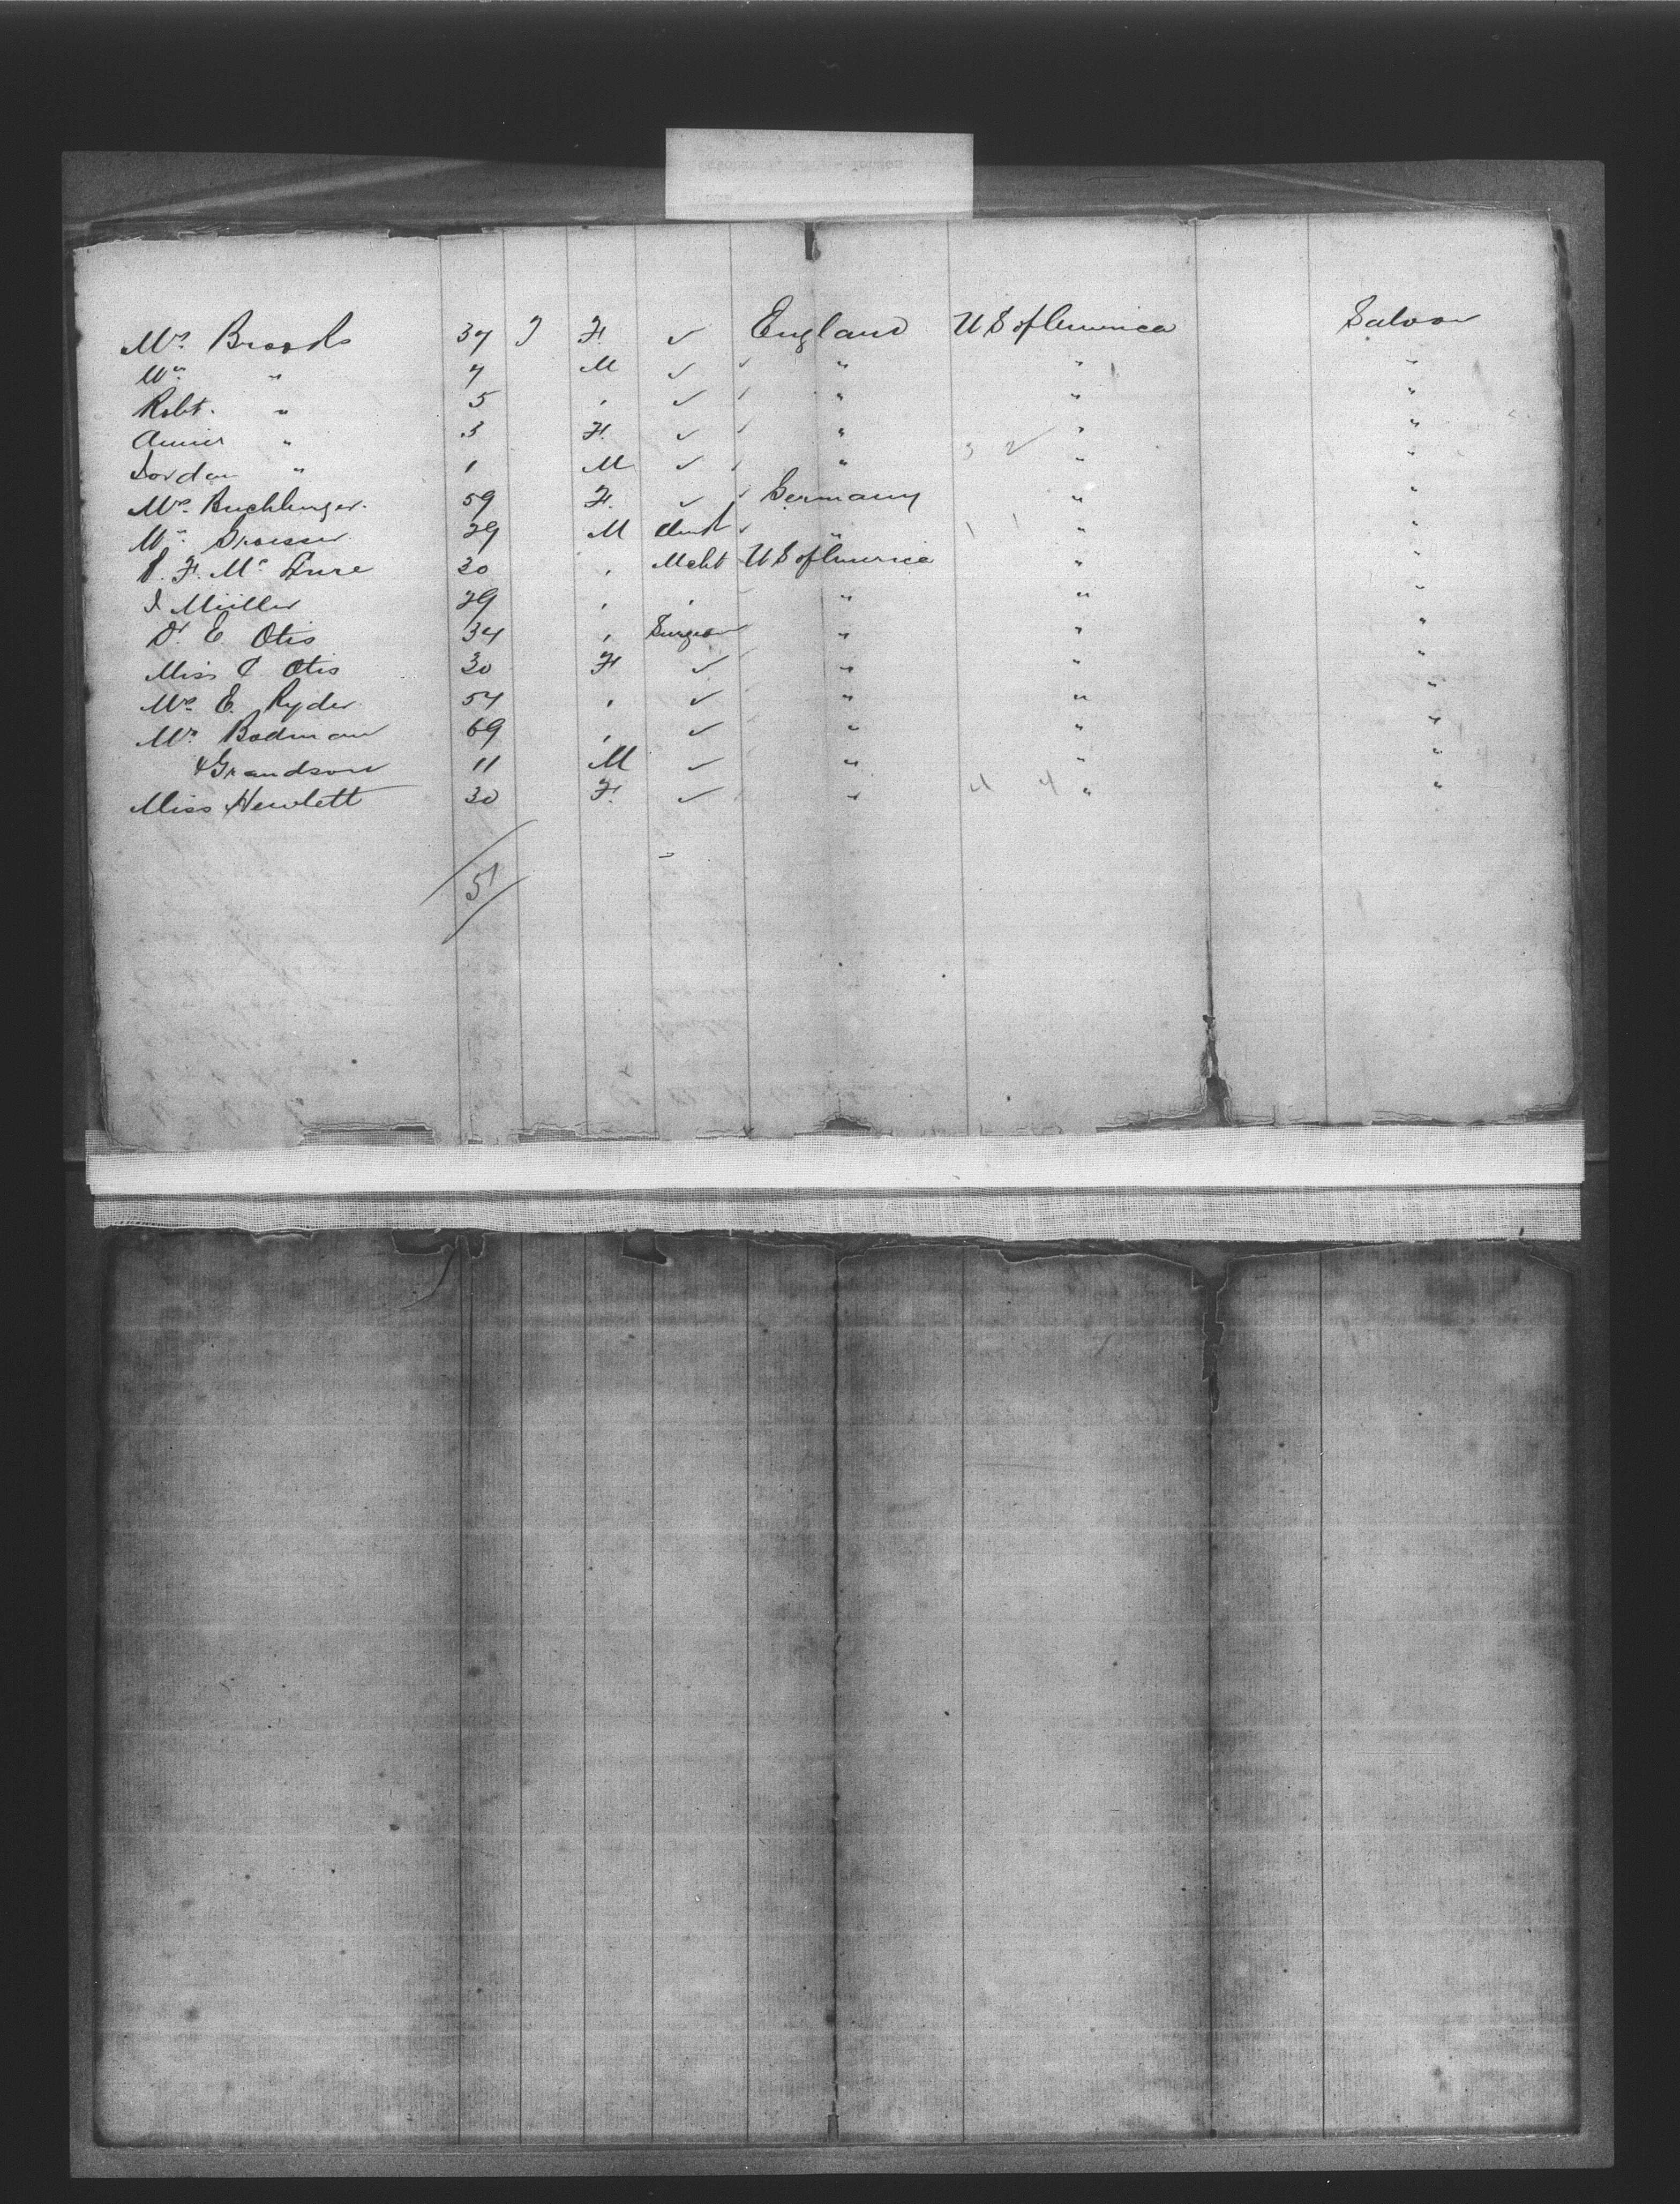 Mrs. Brooks 37 F. ✓ England U S of America Saloon
Wm. " 7 M ✓ " " "
Robt. " 5 , ✓ " " "
Annie " 3 F. ✓ " " "
" 1 M ✓ " " "
Mrs. 59 F. ✓ Germany " "
29 M " " "
F. Mc 30 , Mcht U S of America " "
Müller 29 , , " " "
Dr. E. Otis 34 , Surgeon " " "
Miss C Otis 30 F ✓ " " "
Mrs. E. Ryder 54 , ✓ " " "
Mrs. Bodman 69 , ✓ " " "
& Grandson 11 M ✓ " " "
Miss Hewlett 30 F. ✓ " " "
51